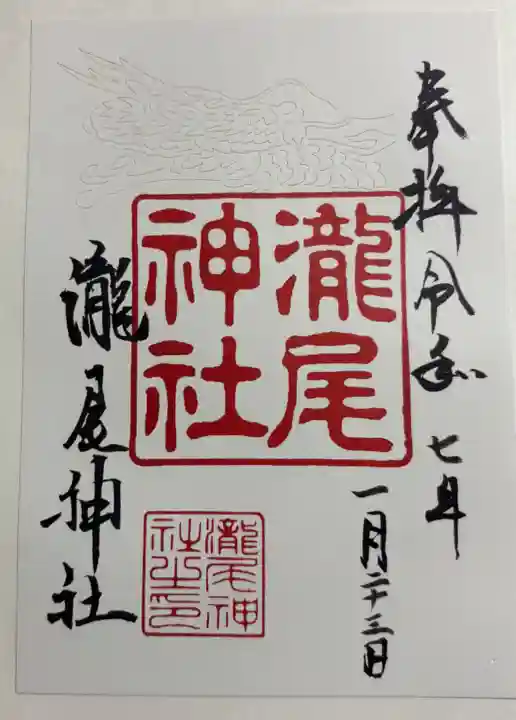 奉拝 令和 七年
一月二十三日
瀧尾
神社
瀧尾神社
瀧尾神
社之印